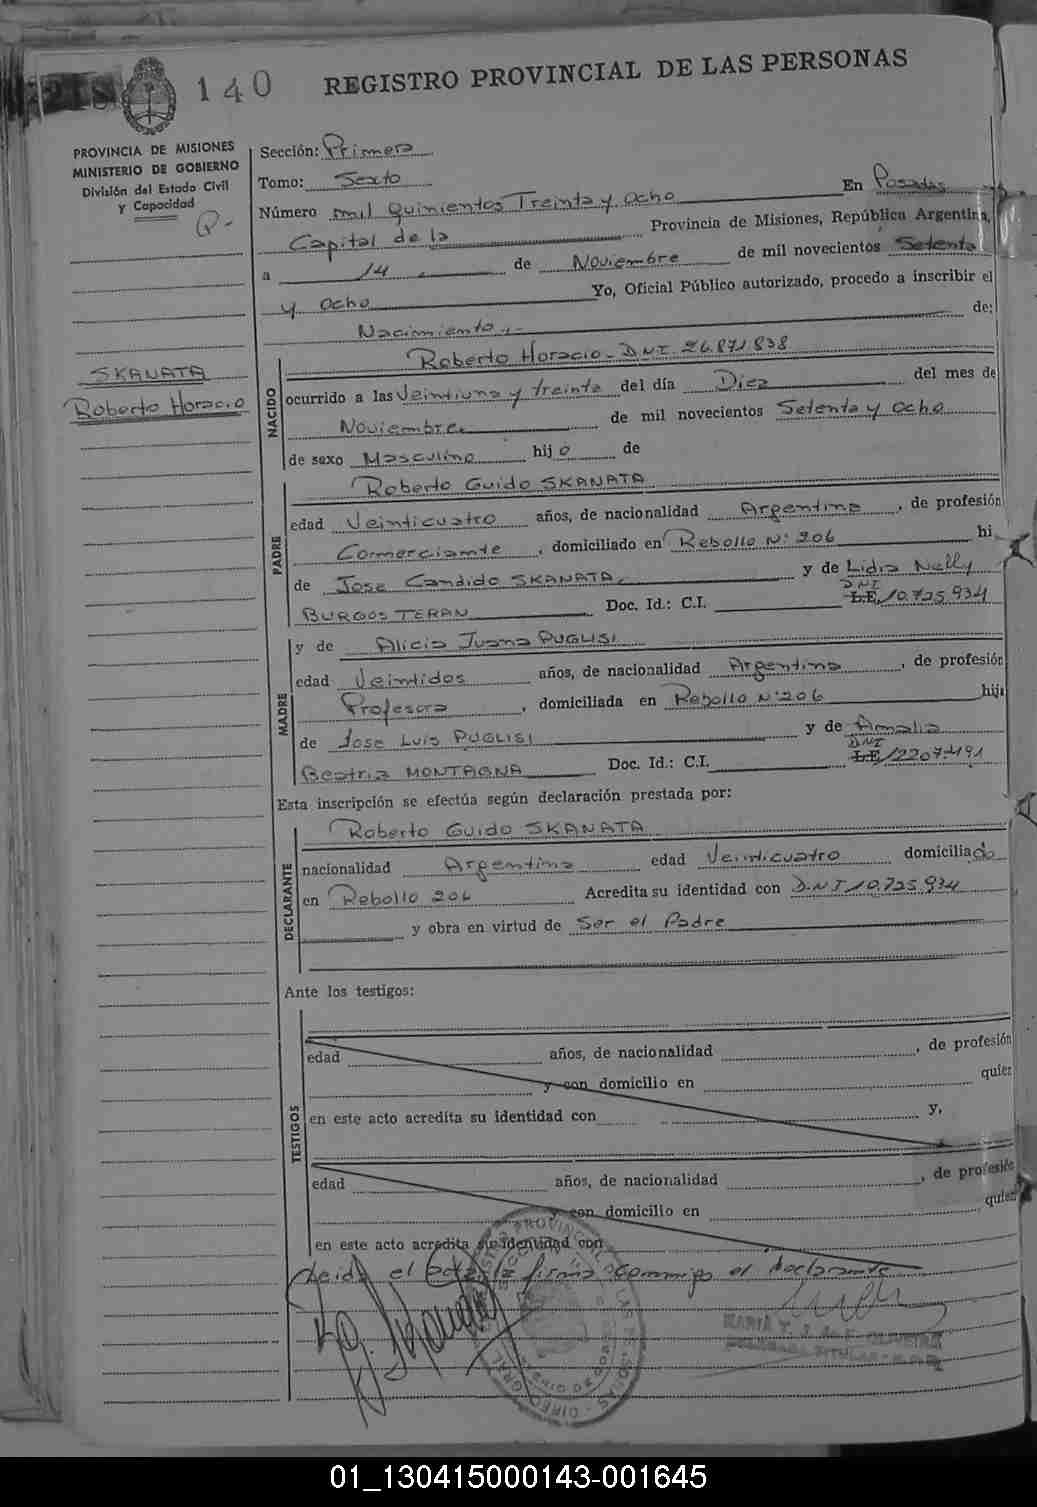 218 140 REGISTRO PROVINCIAL DE LAS PERSONAS
PROVINCIA DE MISIONES
MINISTERIO DE GOBIERNO
División del Estado Civil
y Capacidad
SKANATA
Roberto Horacio
Sección: Primera
Tomo: Sexto
Número mil Quinientos Treinta y Ocho En Posadas
Capital de la Provincia de Misiones, República Argentina,
a 14 de Noviembre de mil novecientos Setenta
y Ocho Yo, Oficial Público autorizado, procedo a inscribir el
Nacimiento de:
NACIDO
Roberto Horacio - D.N.I. 26.871.838
ocurrido a las Veintiuna y treinta del día Diez del mes de
Noviembre de mil novecientos Setenta y Ocho
de sexo Masculino hijo de
PADRE
Roberto Guido SKANATA
edad Veinticuatro años, de nacionalidad Argentina, de profesión
Comerciante, domiciliado en Rebollo N: 206 hi
de Jose Candido SKANATA y de Lidia Nelly
BURGOS TERAN Doc. Id.: C.I. L.E. DNI 10.725.934
MADRE
y de Alicia Juana PUGLISI
edad Veintidos años, de nacionalidad Argentina, de profesión
Profesora, domiciliada en Rebollo N: 206 hija
de Jose Luis PUGLISI y de Amalia
Beatriz MONTAGNA Doc. Id.: C.I. LE DNI 12207491
Esta inscripción se efectúa según declaración prestada por:
DECLARANTE
Roberto Guido SKANATA
nacionalidad Argentina edad Veinticuatro domiciliado
en Rebollo 206 Acredita su identidad con D.N.I 10.725.934
y obra en virtud de Ser el Padre
Ante los testigos:
TESTIGOS
edad años, de nacionalidad , de profesión
y con domicilio en quien
en este acto acredita su identidad con y,
edad años, de nacionalidad , de profesión
y con domicilio en quien
en este acto acredita su identidad con
Leida el acta la firma conmigo el declarante
01_130415000143-001645